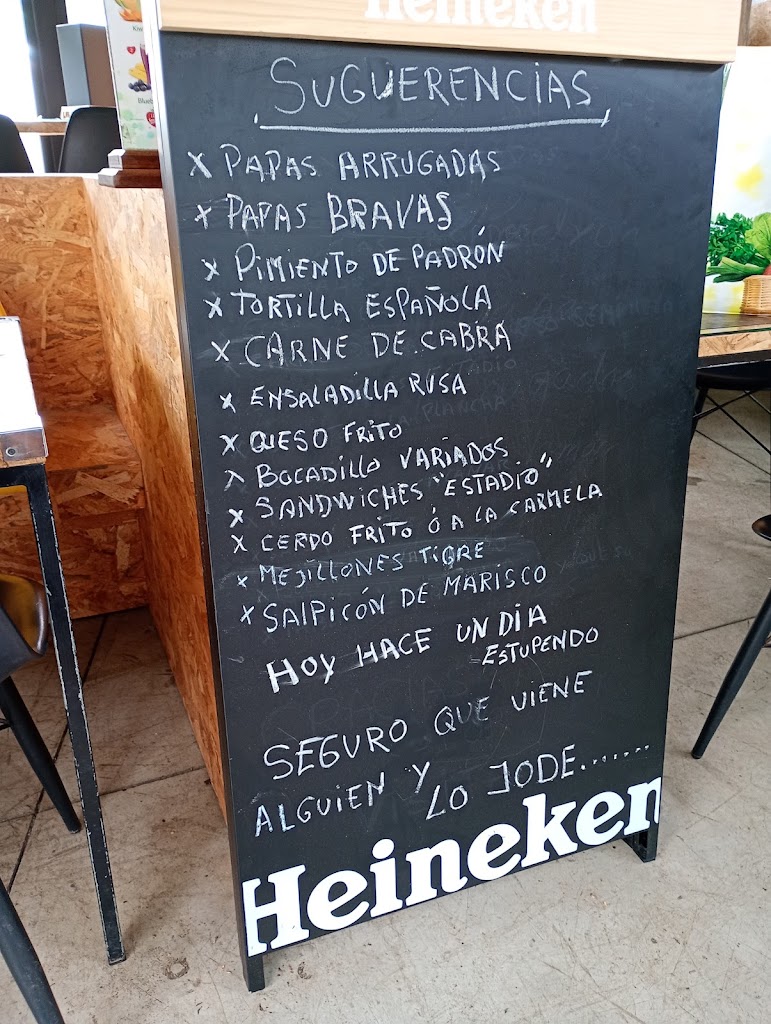 Heineken
SUGUERENCIAS
x PAPAS ARRUGADAS
x PAPAS BRAVAS
x PIMIENTO DE PADRÓN
x TORTILLA ESPAÑOLA
x CARNE DE CABRA
x ENSALADILLA RUSA
x QUESO FRITO
x BOCADILLO VARIADOS
x SANDWICHES "ESTADIO"
x CERDO FRITO Ó A LA CARMELA
x MEJILLONES TIGRE
x SALPICÓN DE MARISCO
HOY HACE UN DIA
ESTUPENDO
SEGURO QUE VIENE
ALGUIEN Y
LO JODE.......
Heineken